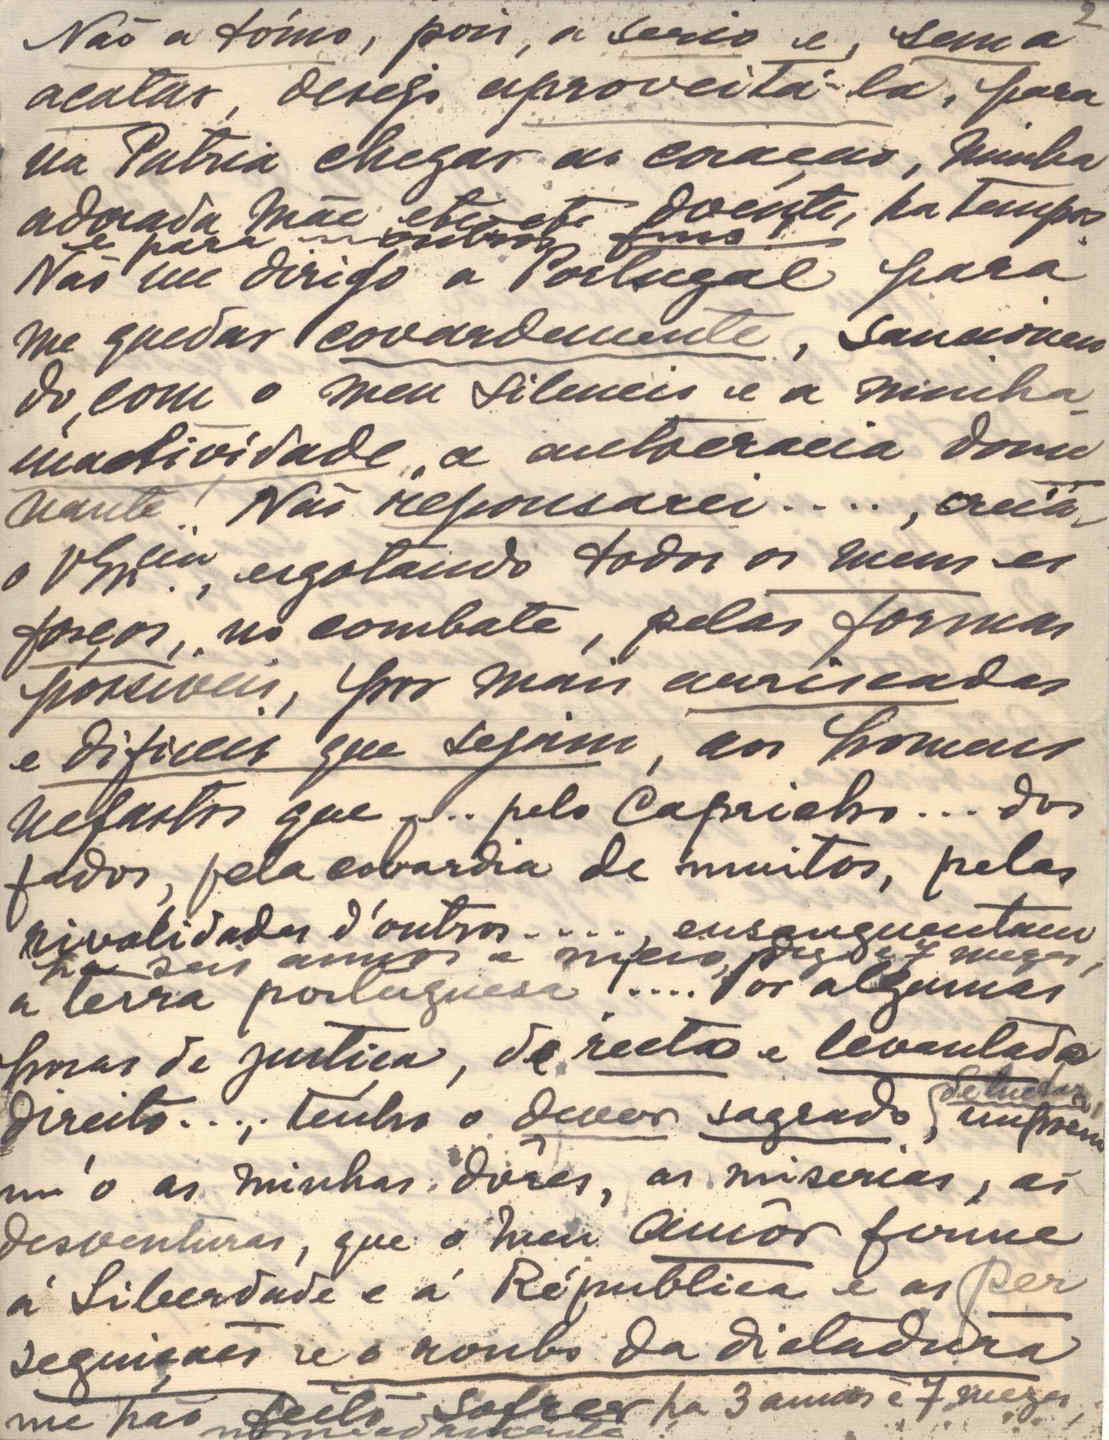 2
Não a tómo, pois, a serio e, sem a
acatar, desejo aproveitá-la, para
na Patria chegar ao coração, Minha
adorada Mãe etc etc doente, ha tempos
e para outros fins
Não me dirijo a Portugal para
me quedar covardemente, sancionan
do, com o meu silencio e a minha
inactividade, a autocracia domi
nante! Não repousarei...., creia-
o V. Ex.cia, esgotando todos os meus es
forços, no combate, pelas formas
possiveis, por mais arriscadas
e dificeis que sejam, aos homens
nefastos que .... pelo Capricho... dos
fados, pela cobardia de muitos, pelas
rivalidades d'outros....., ensanguentam
ha seis annos e meio, digo e 7 mezes,
a terra portuguesa .... Por algumas
horas de justiça, de recto e levantado
direito..., tenho o dever sagrado,
m'o as minhas dôres, as miserias, as
desventuras, que o meu amôr firme
á Liberdade e á Républica e as per
seguições e o roubo da dictadura
me hão feito sofrer ha 3 annos e 7 mezes,
nomeadamente